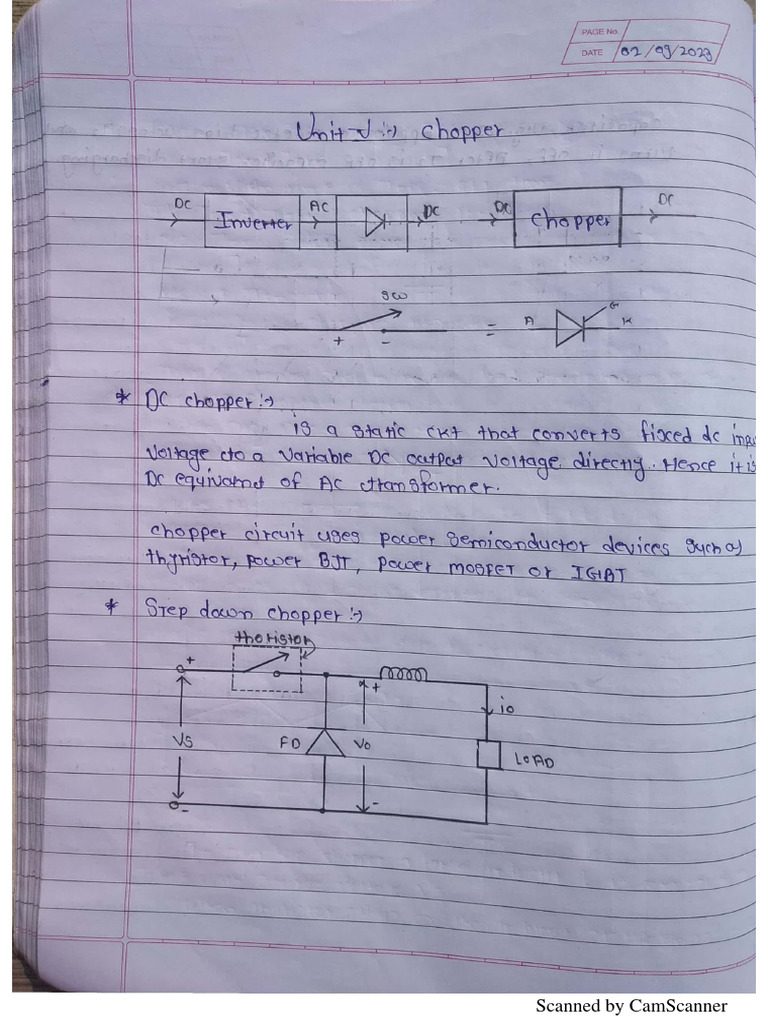 PAGE No.
DATE 02/09/2023
Unit-V :-> chopper
DC Inverter AC DC DC chopper DC
sw
+ - = A G K
* DC chopper :->
is a static ckt that converts fixed dc inpu
voltage to a variable DC output voltage directly. Hence it is
DC equivamet of AC transformer.
chopper circuit uses power semiconductor devices such as
thyristor, power BJT, power MOSFET or IGBT
* Step down chopper :->
thoristor
+ +
io
VS FD Vo LOAD
- -
Scanned by CamScanner